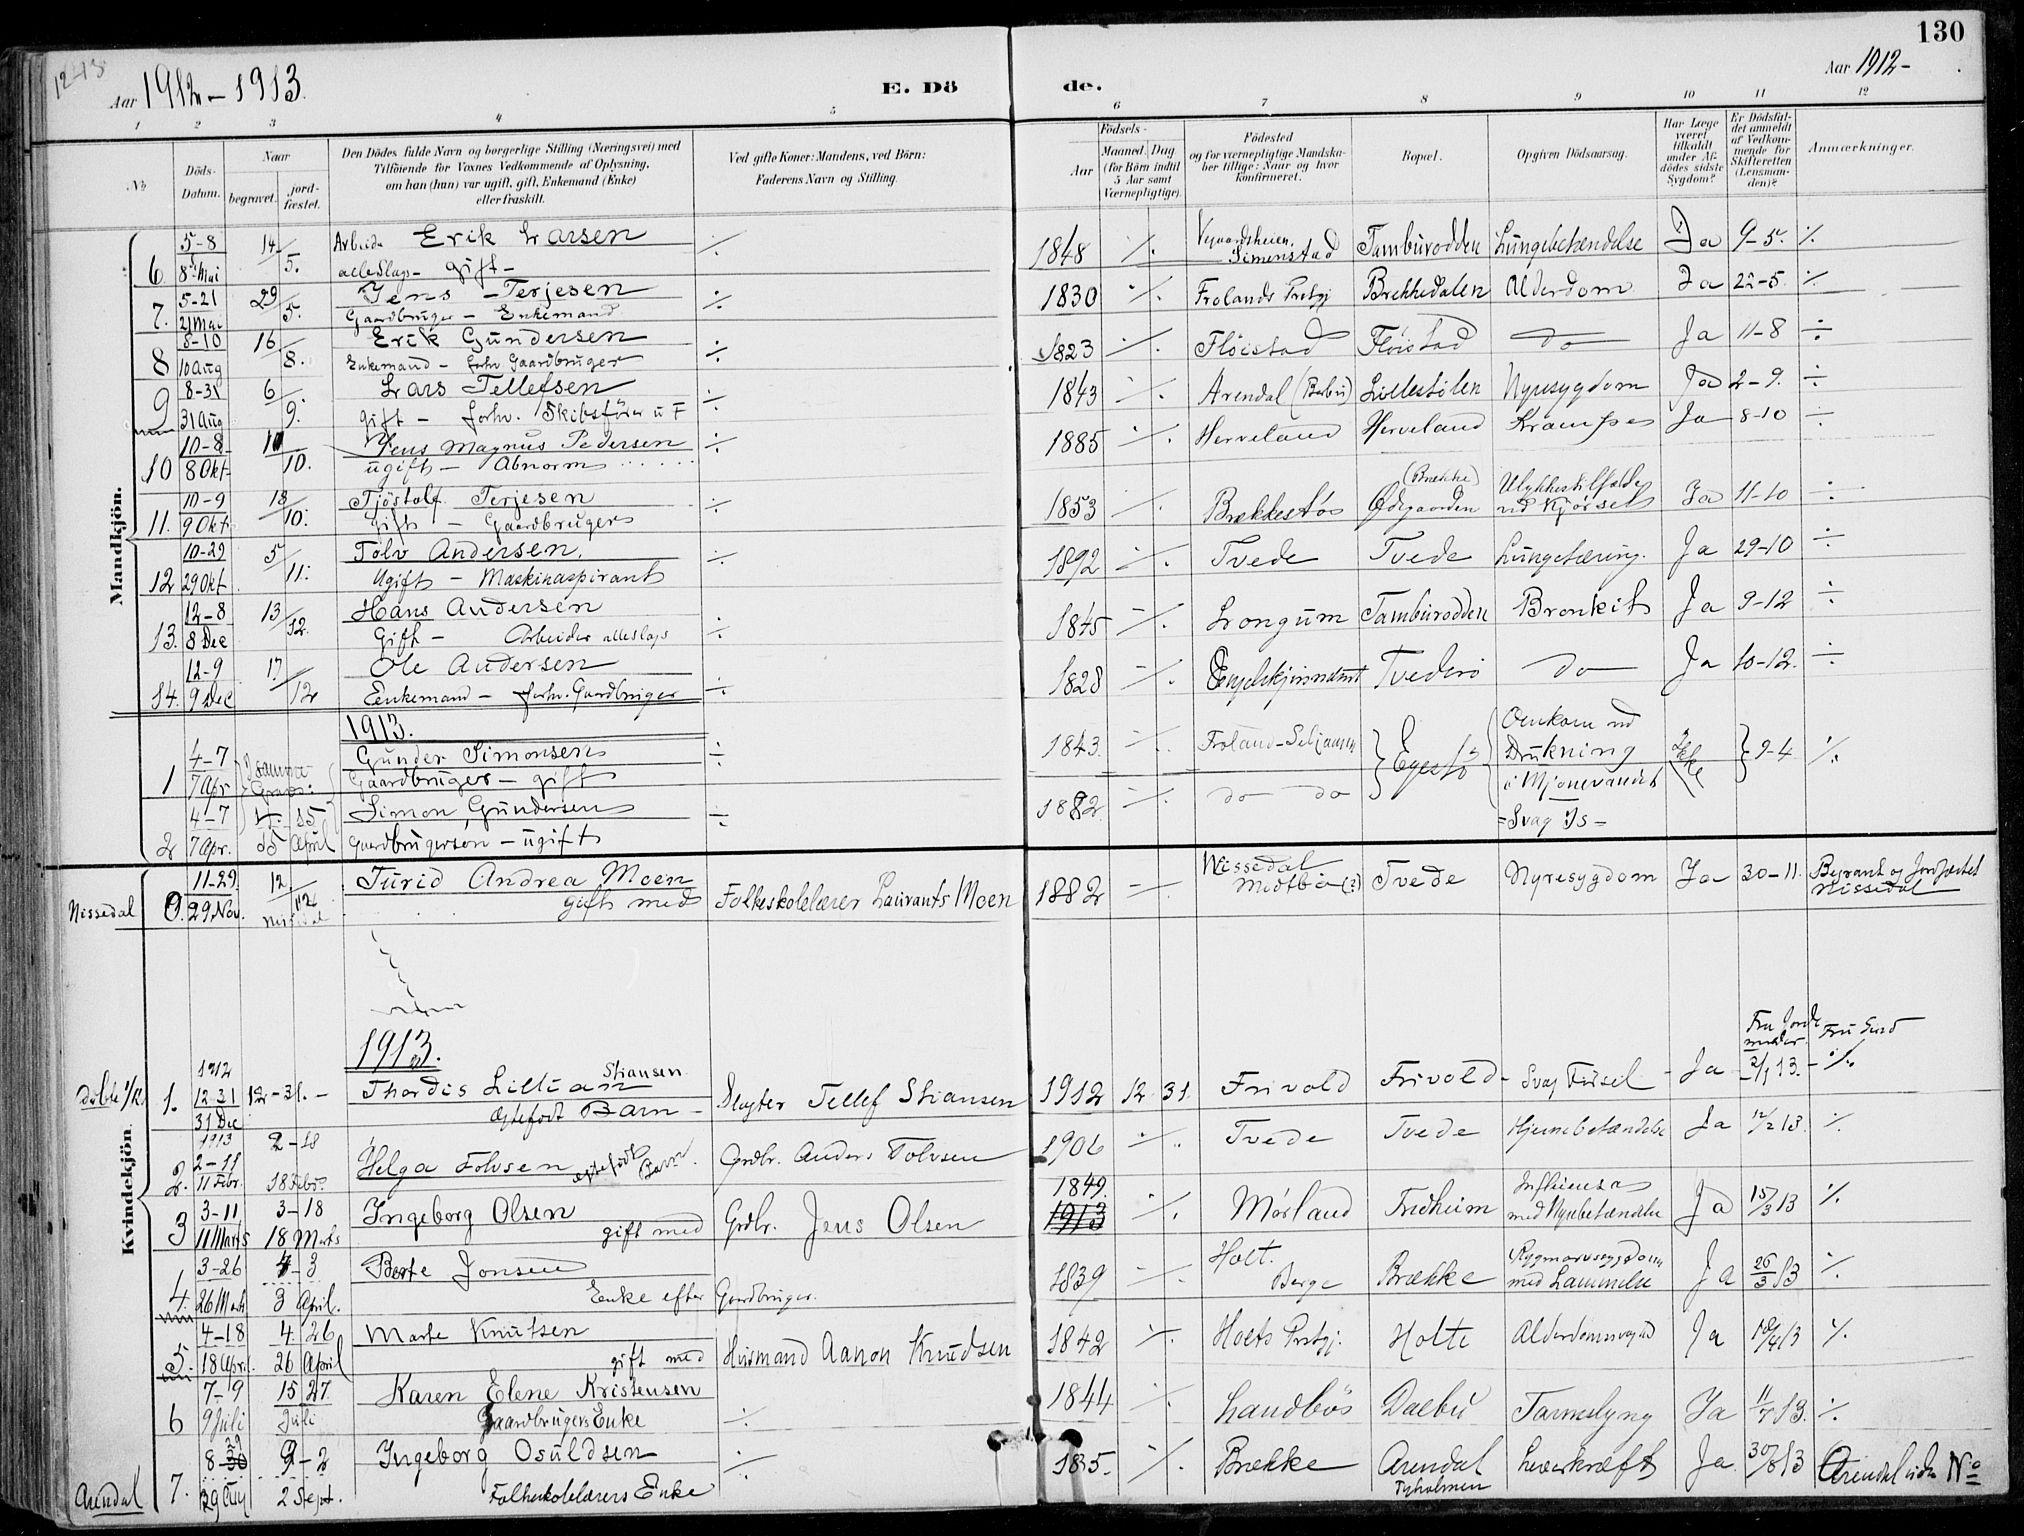 130
12-13
Aar 1912-1913.
E. Dö
de.
Aar 1912-
1 2 3 4 5 6 7 8 9 10 11 12
No
Döds-Datum.
Naar
begravet.
jord-fæstet.
Den Dödes fulde Navn og borgerlige Stilling (Næringsvei) med
Tilföiende for Voxnes Vedkommende af Oplysning,
om han (hun) var ugift, gift, Enkemand (Enke)
eller fraskilt.
Ved gifte Koner: Mandens, ved Börn:
Faderens Navn og Stilling.
Födsels-
Aar
Maaned. Dag
(for Börn indtil
5 Aar samt
Værnepligtige).
Födested
og for værnepligtige Mandska-
ber tillige: Naar og hvor
konfirmeret.
Bopæl.
Opgiven Dödsaarsag.
Har Læge
været
tilkaldt
under Af-
dödes sidste
Sygdom?
Er Dödsfal-
det anmeldt
af Vedkom-
mende for
Skifteretten
(Lensman-
den)?
Anmærkninger.
Mandkjön.
5-8 14/5. Arbeide Erik Larsen ÷ 1848 ÷ Simenstad Tamburodden Lungebetendelse Ja 9-5. ÷
6. 8de Mai alleslags- gift-
5-21 29/5. Jens Terjesen ÷ 1830 ÷ Frolands Prstgj Brekkedalen Alderdom Ja 22-5. ÷
7. 21 Mai Gaardbruger - Enkemand
8-10 16/8. Erik Gundersen ÷ 1823 ÷ Flöistad Flöistad do Ja 11-8 ÷
8 10 Aug Enkemand - forhv Gaardbruger
8-31 6/9. Lars Tellefsen ÷ 1843 ÷ Arendal (Barbu) Lillestölen Nyresygdom Ja 2-9. ÷
9 31 Aug gift - forhv. Skibsförer u F
10-8 10. Jens Magnus Pedersen ÷ 1885 ÷ Herveland Herveland Krampe Ja 8-10 ÷
10 8 Okt ugift - Abnorm
10-9 18/10. Tjöstolf Terjesen ÷ 1853 ÷ Brækkestö (Brække) Ödegaarden Ulykkestilfælde ved Kjörsel Ja 11-10 ÷
11. 9 Okt gift - Gaardbruger
10-29 5/11. Tolv Andersen. ÷ 1892 ÷ Tvede Tvede Lungetæring. Ja 29-10 ÷
12 29 Okt Ugift - Maskinaspirant
12-8 13/12. Hans Andersen ÷ 1845 ÷ Longum Tamburodden Bronkit Ja 9-12 ÷
13. 8 Dec Gift - Arbeider alleslags
12-9 17/12 Ole Andersen ÷ 1828 ÷ Tvede do Ja 10-12. ÷
14. 9 Dec Eenkemand - forhv. Gardbruger
1913.
4-7 I samme Grav: Gunder Simonsen ÷ 1843. ÷ Froland- Egestö Omkom ved Drukning Ikke 9-4 ÷
1 7 Apr Gaardbruger - gift
4-7 15 Simon Gundersen ÷ 1882 ÷ do do i Mjonevandet
2 7 Apr. 15 April Gaardbrugersön - ugift = Svag Is -
Kvindekjön.
11-29. 12/12 Turid Andrea Moen Folkeskolelærer Laurants Moen 1882 ÷ Nissedal Midtbö (?) Tvede Nyresygdom Ja 30-11. Begravet og Jordfæstet Nissedal
Nissedal 0. 29 Nov. Nissedal gift med
1913.
1912
12-31 12-31.- Thordis Lillian Stiansen Slagter Tellef Stiansen 1912 12 31 Frivold Frivold Svag Födsel Ja 2/1 13. Fru Jorde moder. ÷
1. 31 Dec Ægtefödt Barn -
1913
2-11 2-18 Helga Tolvsen ægtefödt Barn. Grdbr. Anders Tolvsen 1906 ÷ Tvede Tvede Hjernebetændelse Ja 12/2 13. ÷
2. 11 Febr. 18 Febr.
3-11 3-18 Ingeborg Olsen Grdbr. Jens Olsen 1849. 1913 ÷ Mörland Fredheim Influensa med Nyrebetændelse Ja 15/3 13 ÷
3 11 Marts 18 Marts gift med
3-26 4-3 Berte Jonsen 1839 ÷ Holt. Berge Brække Rygmarvssygdom med Lammelse Ja 26/3 13 ÷
4. 26 Marts 3 April. Enke efter Gardbruger.
4-18 4. 26 Marte Knutsen 1842 ÷ Holts Prstgj. Holte Ja 18/4 13 ÷
5. 18 April. 26 April gift med Husmand Aanon Knudsen
7-9 15 27 Karen Elene Kristensen 1844 ÷ Landbö Dalbu Tarmslyng Ja 11/7 13. ÷
6 9 Juli Juli Gaardbrugers Enke ÷
8-30 29 9-2 Ingeborg Osuldsen ÷ 1835. ÷ Brække Arendal Tyholmen Leverkræft Ja 30/8 13 Arendal No
Arendal 7. 29 Aug 2 Sept. Folkeskolelærers Enke